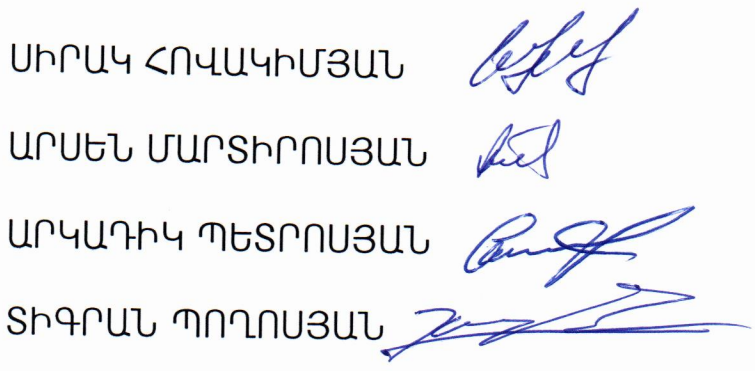 ՍԻՐԱԿ ՀՈՎԱԿԻՄՅԱՆ
ԱՐՍԵՆ ՄԱՐՏԻՐՈՍՅԱՆ
ԱՐԿԱԴԻԿ ՊԵՏՐՈՍՅԱՆ
ՏԻԳՐԱՆ ՊՈՂՈՍՅԱՆ